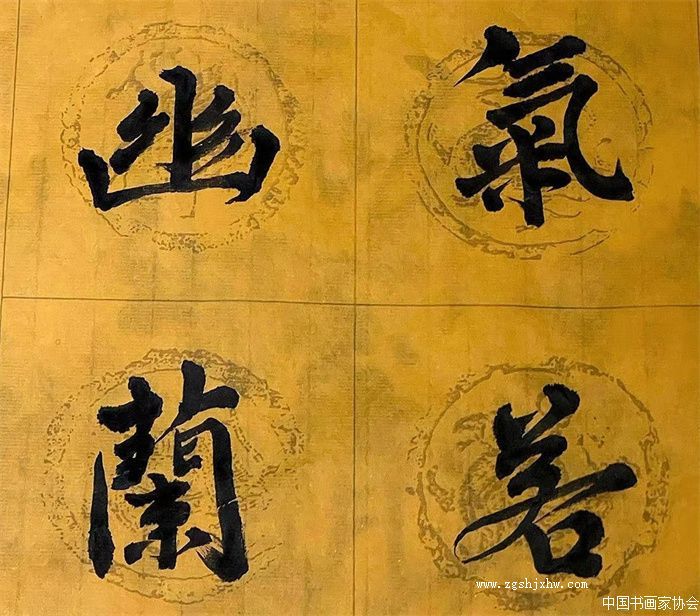 氣若
幽蘭
www.zgshjxhw.com
中国书画家协会